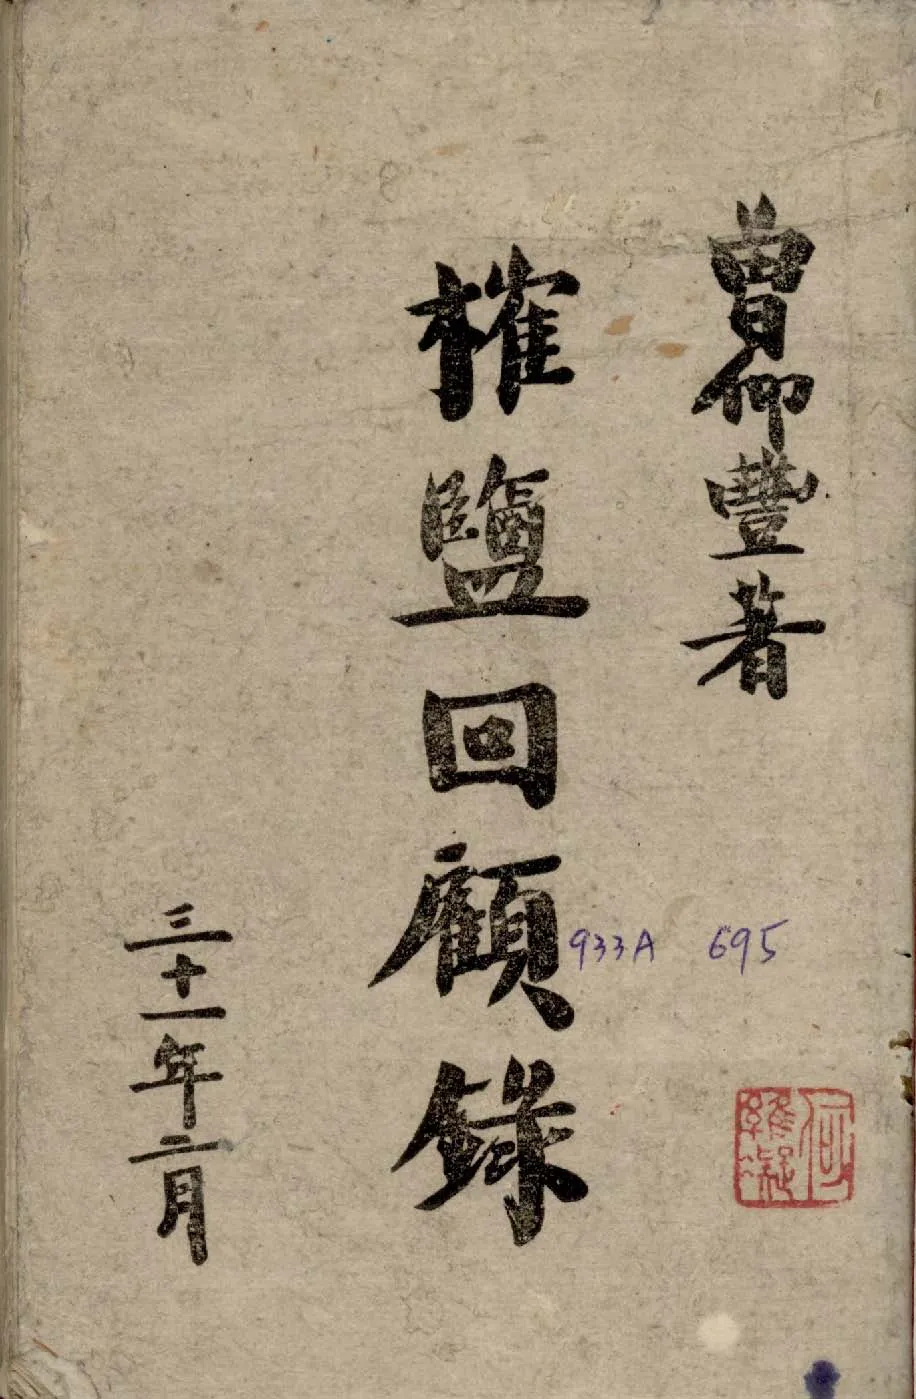 曾仰豐著
榷鹽回顧錄
933A 695
何維凝
三十一年二月